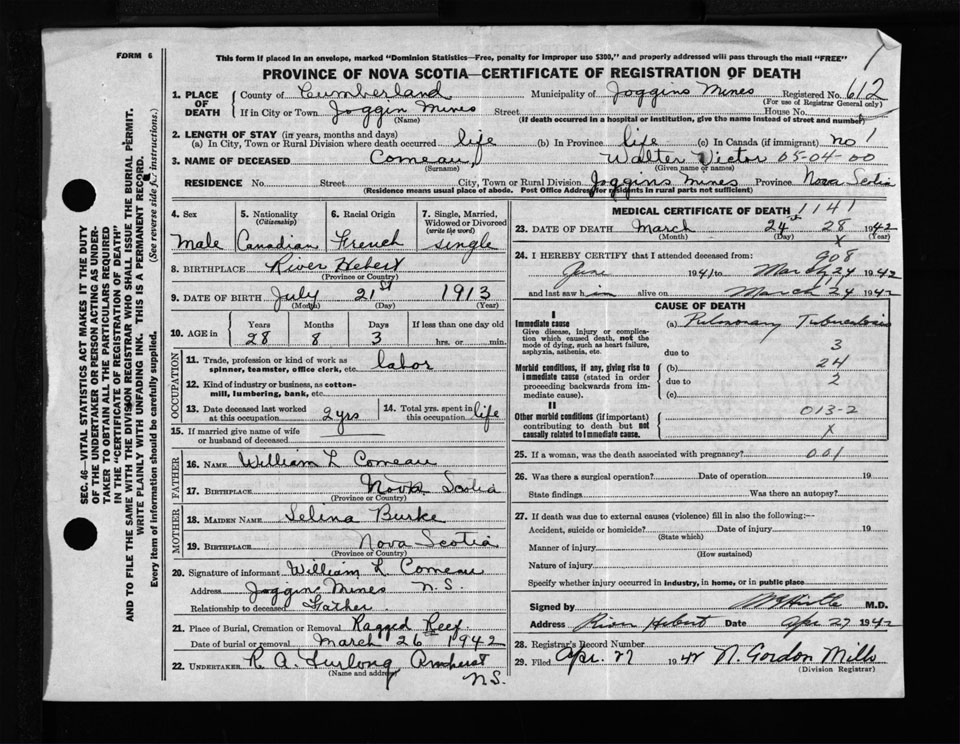 FORM 6
This form if placed in an envelope, marked "Dominion Statistics—Free, penalty for improper use $300," and properly addressed will pass through the mail "FREE"
PROVINCE OF NOVA SCOTIA—CERTIFICATE OF REGISTRATION OF DEATH
1. PLACE OF DEATH County of Cumberland Municipality of Joggins Mines Registered No. 612
(For use of Registrar General only)
If in City or Town Joggin Mines Street House No.
(Name) (If death occurred in a hospital or institution, give the name instead of street and number)
2. LENGTH OF STAY (in years, months and days)
(a) In City, Town or Rural Division where death occurred life (b) In Province life (c) In Canada (if immigrant) no
3. NAME OF DECEASED Comeau, Walter Victor 05-04-00
(Surname) (Given name or names)
RESIDENCE No. Street City, Town or Rural Division Joggins Mines Province Nova Scotia
(Residence means usual place of abode. Post Office Address for residents in rural parts not sufficient)
4. Sex 5. Nationality (Citizenship) 6. Racial Origin 7. Single, Married, Widowed or Divorced (write the word)
Male Canadian French single
8. BIRTHPLACE River Hebert
(Province or Country)
9. DATE OF BIRTH July 21st 1913
(Month) (Day) (Year)
10. AGE in Years Months Days If less than one day old
28 8 3 hrs. or min.
OCCUPATION
11. Trade, profession or kind of work as spinner, teamster, office clerk, etc. labor
12. Kind of industry or business, as cotton-mill, lumbering, bank, etc.
13. Date deceased last worked at this occupation 2 yrs 14. Total yrs. spent in this occupation life
15. If married give name of wife or husband of deceased
FATHER
16. NAME William L Comeau
17. BIRTHPLACE Nova Scotia
(Province or Country)
MOTHER
18. MAIDEN NAME Selina Burke
19. BIRTHPLACE Nova Scotia
(Province or Country)
20. Signature of informant William L Comeau
Address Joggin Mines N.S.
Relationship to deceased Father
21. Place of Burial, Cremation or Removal Ragged Reef
Date of burial or removal March 26 1942
22. UNDERTAKER R. A. Furlong Amherst
(Name and address) N.S.
MEDICAL CERTIFICATE OF DEATH 1141
23. DATE OF DEATH March 24 28 1942
(Month) (Day) x (Year)
24. I HEREBY CERTIFY that I attended deceased from: 908
June 1941 to March 24 1942
and last saw him alive on March 24 1942
CAUSE OF DEATH
I
Immediate cause
Give disease, injury or complication which caused death, not the mode of dying, such as heart failure, asphyxia, asthenia, etc.
(a) Pulmonary Tuberculosis
due to 3
Morbid conditions, if any, giving rise to immediate cause (stated in order proceeding backwards from immediate cause).
(b) 24
due to 2
(c)
II 013-2
Other morbid conditions (if important) contributing to death but not causally related to immediate cause. x
25. If a woman, was the death associated with pregnancy? 001
26. Was there a surgical operation? Date of operation 19
State findings Was there an autopsy?
27. If death was due to external causes (violence) fill in also the following:—
Accident, suicide or homicide? Date of injury 19
(State which)
Manner of injury
(How sustained)
Nature of injury
Specify whether injury occurred in industry, in home, or in public place
Signed by M.D.
Address River Hebert Date Apr 27 1942
28. Registrar's Record Number
29. Filed Apr. 27 1942 N. Gordon Mills
(Division Registrar)
SEC. 46—VITAL STATISTICS ACT MAKES IT THE DUTY
OF THE UNDERTAKER OR PERSON ACTING AS UNDER-
TAKER TO OBTAIN ALL THE PARTICULARS REQUIRED
IN THE "CERTIFICATE OF REGISTRATION OF DEATH"
AND TO FILE THE SAME WITH THE DIVISION REGISTRAR WHO SHALL ISSUE THE BURIAL PERMIT.
WRITE PLAINLY WITH UNFADING INK. THIS IS A PERMANENT RECORD.
Every item of information should be carefully supplied. (See reverse side for instructions.)